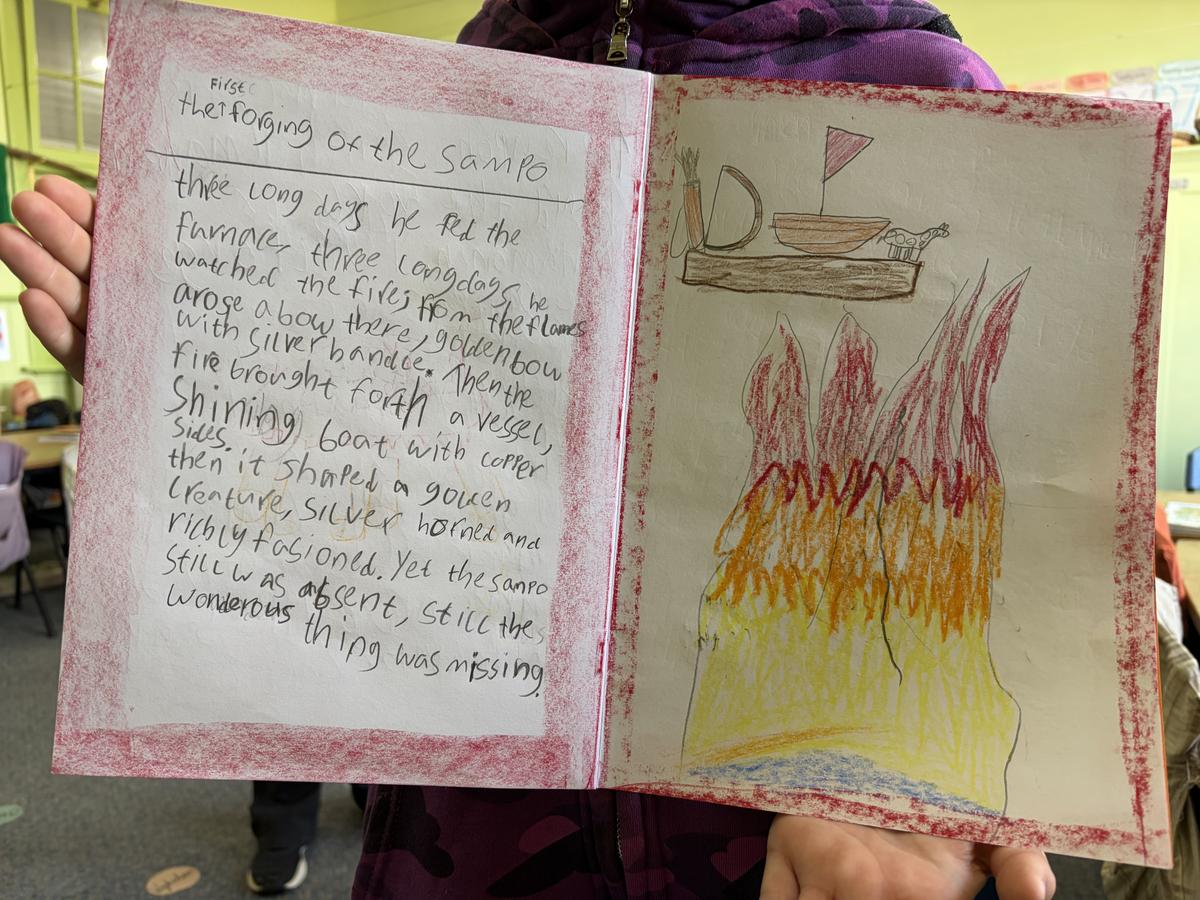 First
the↑forging of the Sampo
three long days he fed the
furnace, three long days, he
watched the fire; from the flames
arose a bow there, golden bow
with silver handle. Then the
fire brought forth a vessel,
Shining boat with copper
sides.
then it shaped a golden
creature, silver horned and
richly fasioned. Yet the sampo
still was absent, still the
wonderous thing was missing.